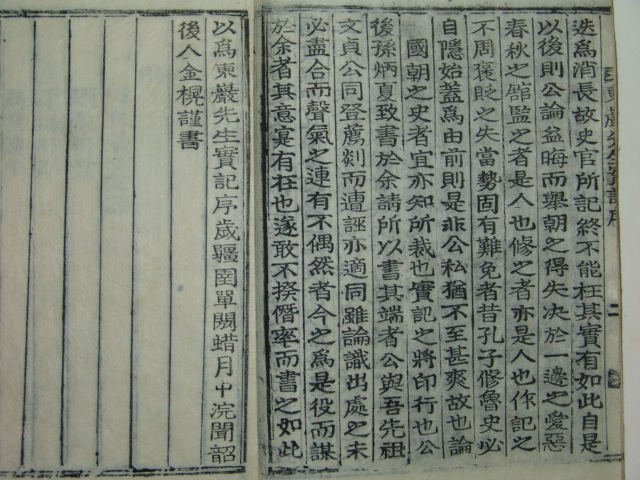 迭爲消長故史官所記終不能枉其實有如此自是
以後則公論益晦而舉朝之得失决於一邊之愛惡
春秋之舘監之者是人也修之者亦是人也作記之
不周褒貶之失當勢固有難免者昔孔子修魯史必
自隱始蓋爲由前則是非公私猶不至甚爽故也論
國朝之史者宜亦知所裁也實記之將印行也公
後孫炳夏致書於余請所以書其端者公與吾先祖
文貞公同登薦剡而遭誣亦適同雖論議出處之未
必盡合而聲氣之連有不偶然者今之爲是役而謀
於余者其意寔有在也遂敢不揆僭率而書之如此
東巖先生實記序
二
以爲東巖先生實記序歲彊圉單閼蜡月中浣聞韶
後人金榥謹書